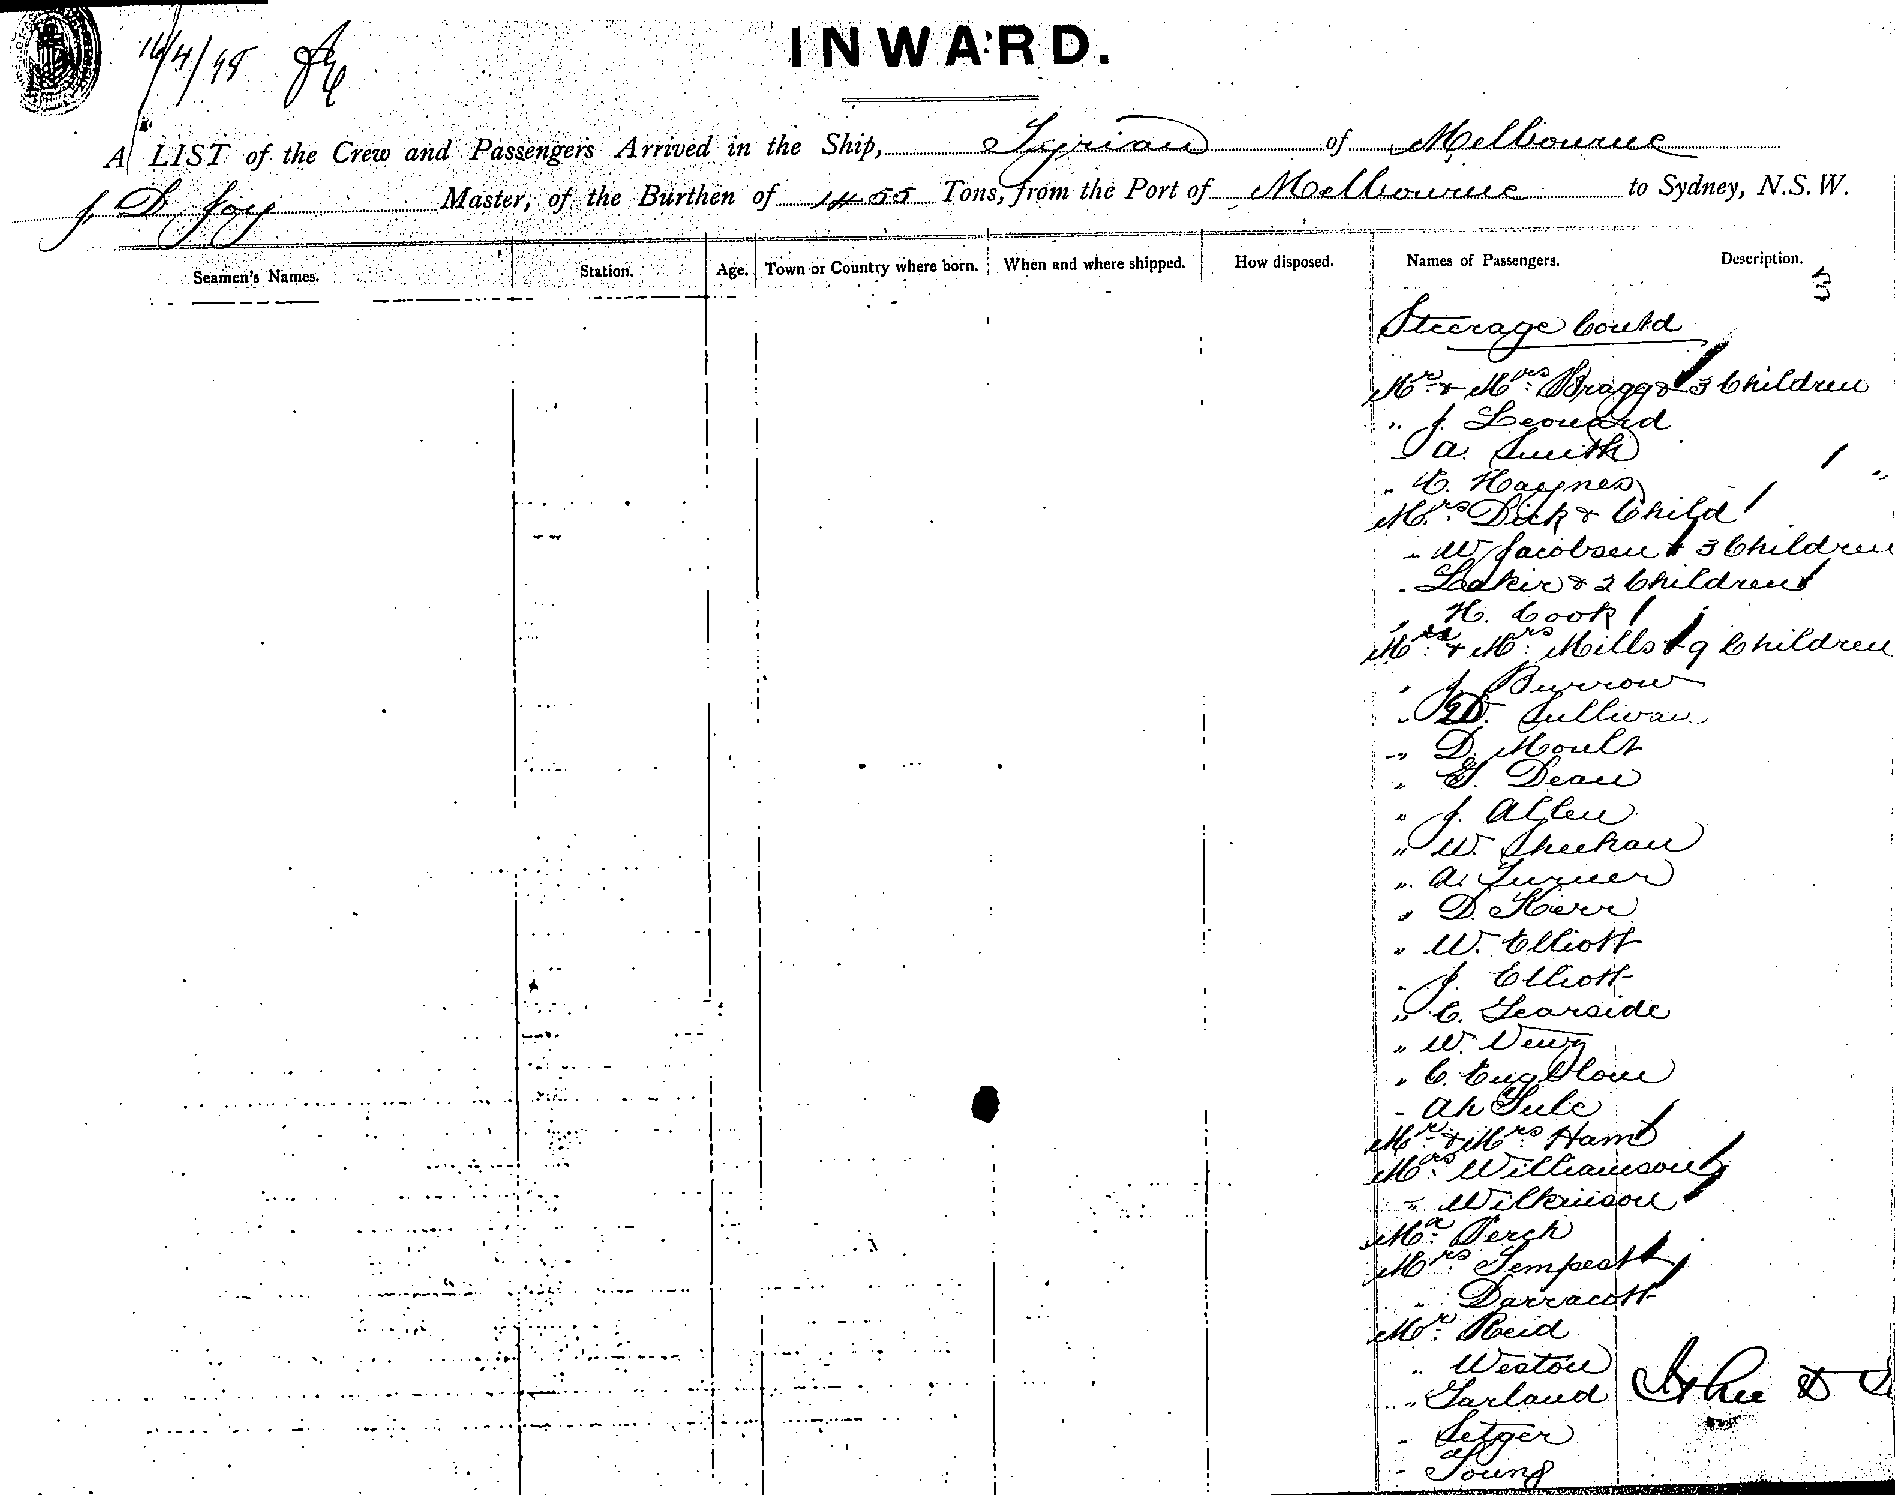 16/4/98
INWARD.
A LIST of the Crew and Passengers Arrived in the Ship, Syrian of Melbourne
J. D. Joy Master, of the Burthen of 1455 Tons, from the Port of Melbourne to Sydney, N.S.W.
Seamen's Names. Station. Age. Town or Country where born. When and where shipped. How disposed. Names of Passengers. Description.
3
Steerage Contd
Mr & Mrs Bragg & 3 Children
" J. Leonard
A. Smith
" C. Haynes
Mrs Dick & Child
" W Jacobsen & 3 Children
" Laker & 2 Children
" H. Cook
Mr & Mrs Mills & 9 Children
" J. Burrow
" D. Sullivan
" D. Moult
" G. Dean
" J. Allen
" W. Sheehan
" A. Turner
" D. Kerr
" W. Elliott
" J. Elliott
" C. Gearside
" W.
" C.
" Ah
Mr & Mrs Ham
Mrs Williamson
" Wilkinson
Mr Perch
Mrs Tempest
" Darracott
Mr Reid
" Weston
" Garland John D
" Setger
" Young